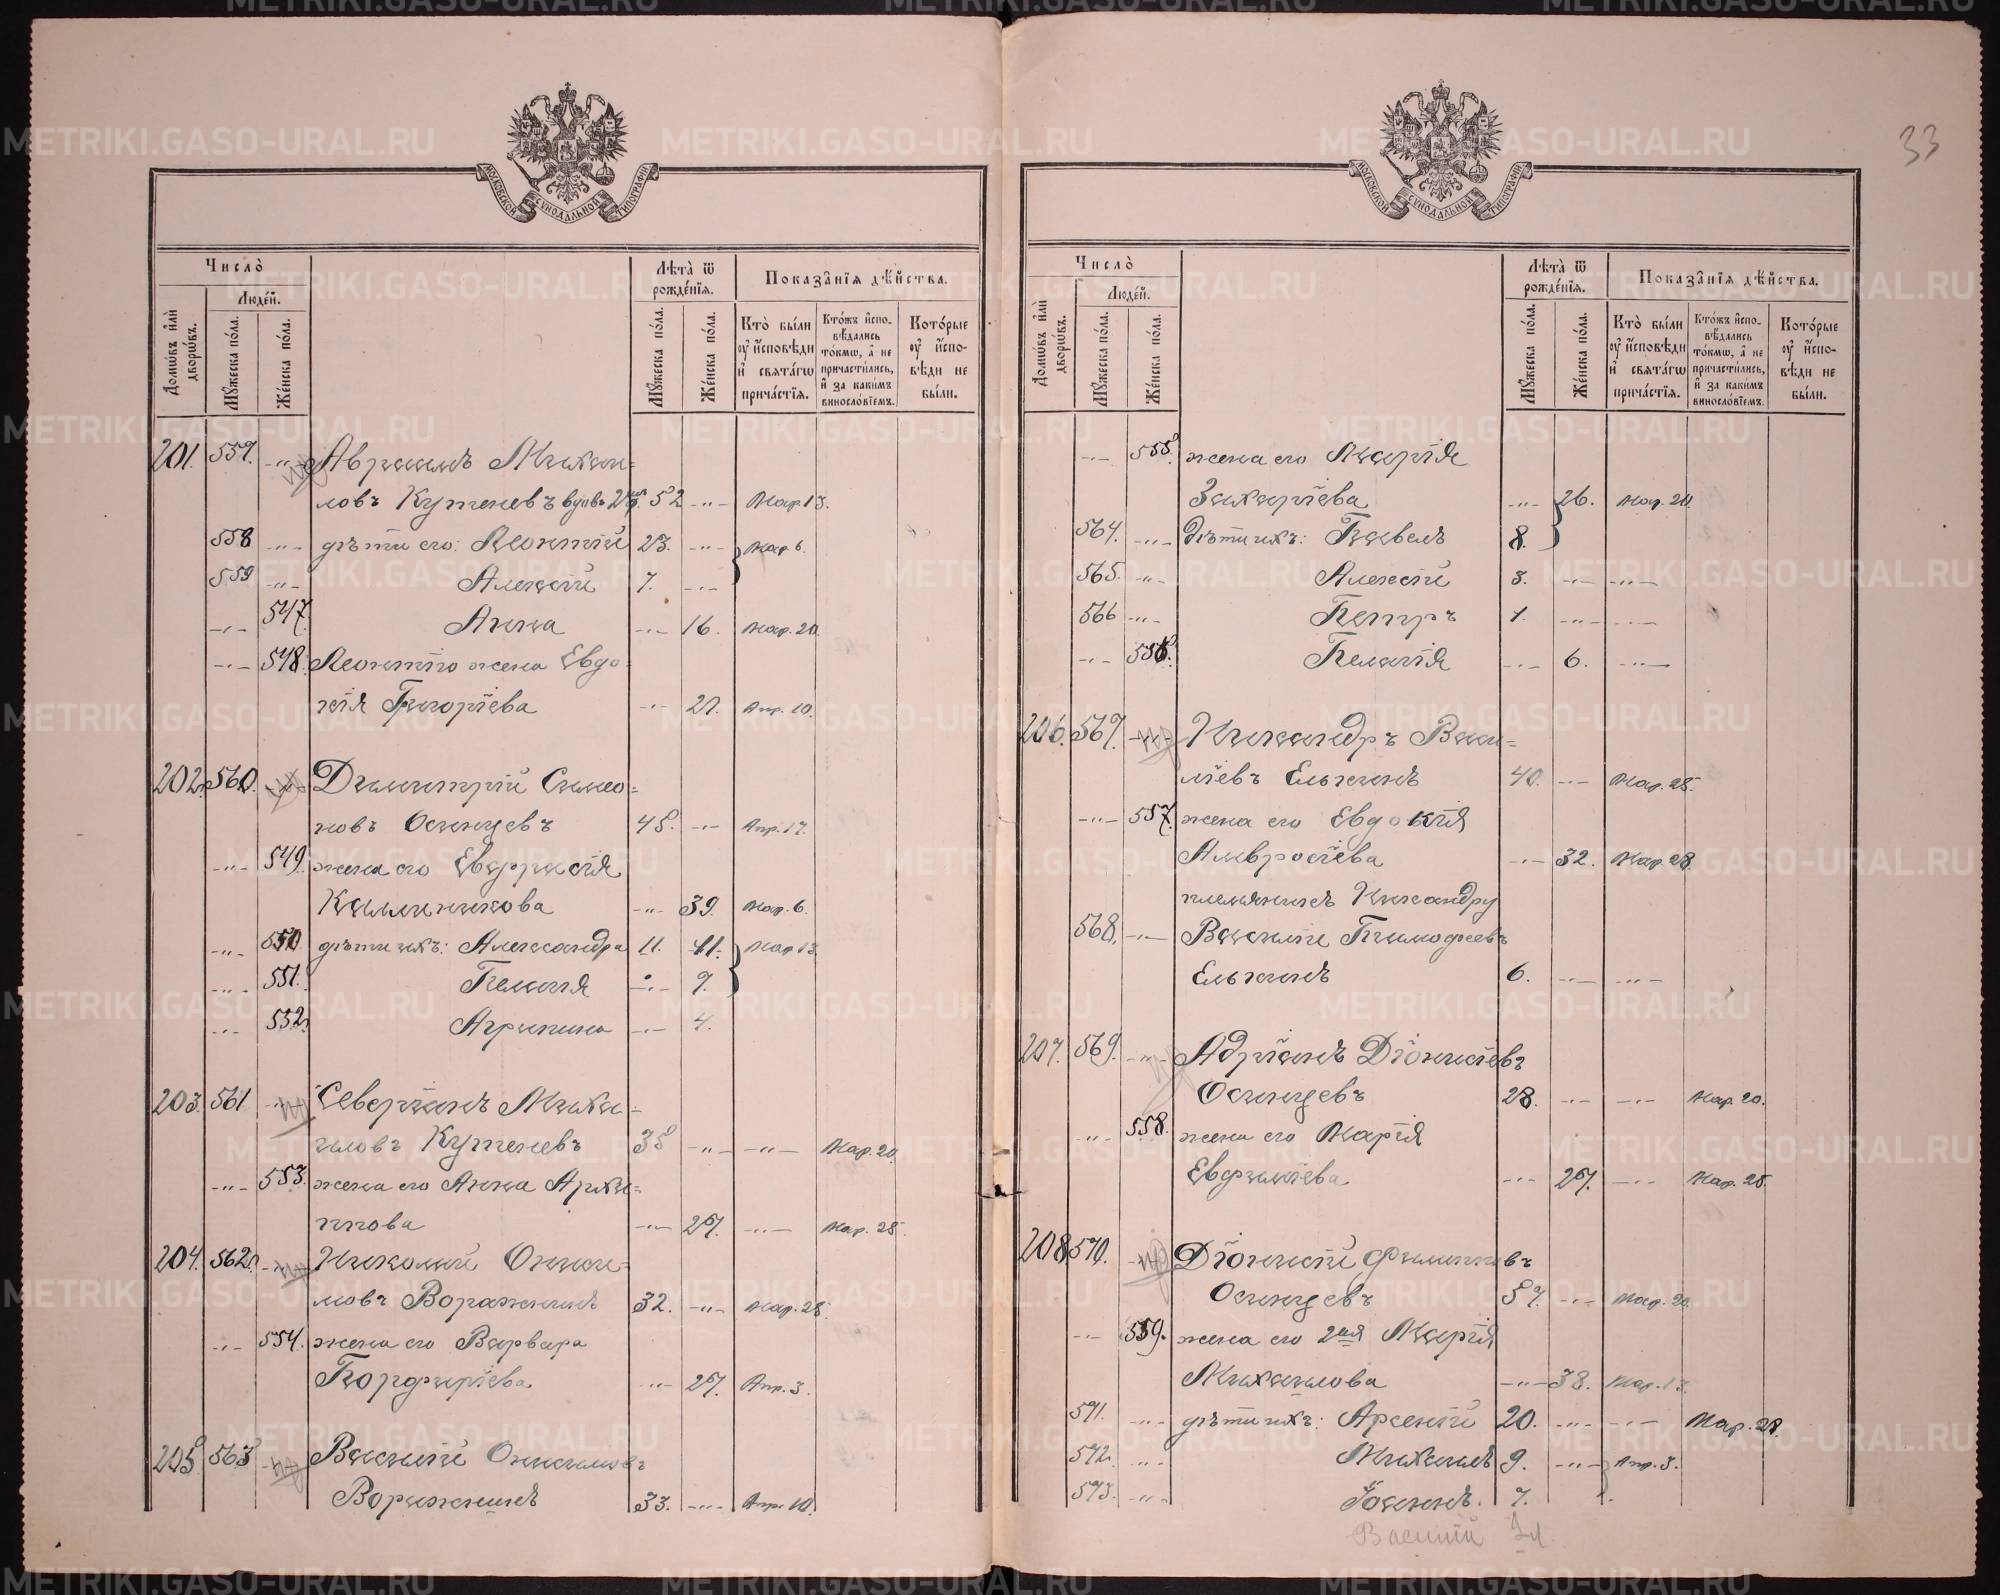 33
МОСКОВСКОЙ СУНОДАЛЬНОЙ ТИПОГРАФІИ
Число̀
Людей.
Домѡвъ и҆лѝ дворѡвъ.
Мꙋжеска по́ла.
Же́нска по́ла.
Лѣта̀ ѿ рожде́нїѧ.
Мꙋжеска по́ла.
Же́нска по́ла.
Показа̑нїѧ дѣ́йства.
Кто̀ бы́ли ᲂу҆ и҆́сповѣди и҆ свѧта́гѡ прича́стїѧ.
Кто́жъ и҆спо-вѣдались то́кмѡ, а҆ не причасти́лись, и҆ за каки́мъ виносло́вїемъ.
Кото́рые ᲂу҆ и҆́спо-вѣди не бы́ли.
201. 557. -„- Авраамъ Михаи=
ловъ Кутеневъ вдовъ 52 -„- Мар. 13.
558 -„- дѣти его: Леонтій 23. -„- Мар. 6.
559 -„- Алексій 7. -„-
-„- 547. Анна -„- 16. Мар. 20.
-„- 548. Леонтію жена Евдо=
кія Григоріева -„- 21. Апр. 10.
202. 560. -„- Димитрій Симео=
новъ Осинцевъ 45. -„- Апр. 17.
-„- 549. жена его Евфрасія
Каллиникова -„- 39. Мар. 6.
-„- 550. дѣти ихъ: Александра 11. 11. Мар. 13.
-„- 551. Пелагія -„- 9.
-„- 552. Агрипина -„- 4.
203. 561 -„- Северіанъ Михаи=
иловъ Кутеневъ 35 -„- -„- Мар. 20.
-„- 553. жена его Анна Архи=
ппова -„- 27. -„- Мар. 25.
204. 562. -„- Николай Ониси=
мовъ Воражнинъ 32. -„- Мар. 28.
-„- 554. жена его Варвара
Порфиріева -„- 27. Апр. 3.
205. 563 -„- Василій Онисимовъ
Воражнинъ 33. -„- Апр. 10.
Число̀
Людей.
Домѡвъ и҆лѝ дворѡвъ.
Мꙋжеска по́ла.
Же́нска по́ла.
Лѣта̀ ѿ рожде́нїѧ.
Мꙋжеска по́ла.
Же́нска по́ла.
Показа̑нїѧ дѣ́йства.
Кто̀ бы́ли ᲂу҆ и҆́сповѣди и҆ свѧта́гѡ прича́стїѧ.
Кто́жъ и҆спо-вѣдались то́кмѡ, а҆ не причасти́лись, и҆ за каки́мъ виносло́вїемъ.
Кото́рые ᲂу҆ и҆́спо-вѣди не бы́ли.
-„- 555. жена его Марія
Захаріева -„- 26. Мар. 20.
564. -„- дѣти ихъ: Павелъ 8.
565. -„- Алексій 3. -„- -„-
566 -„- Петръ 1. -„- -„-
-„- 556. Пелагія -„- 6. -„-
206. 567. -„- Александръ Васи=
ліевъ Елькинъ 40. -„- Мар. 25.
-„- 557. жена его Евдокія
Амвросіева -„- 32. Мар. 28.
племянникъ Александру
568. -„- Василій Тимофеевъ
Елькинъ 6. -„- -„-
207. 569. -„- Адріанъ Діонисіевъ
Осинцевъ 28. -„- -„- Мар. 20.
-„- 558. жена его Марія
Евфиміева -„- 27. -„- Мар. 25.
208. 570. -„- Діонисій Филипповъ
Осинцевъ 57. -„- Мар. 20.
-„- 559. жена его 2ая Марія
Михаилова -„- 38. Мар. 13.
571. -„- дѣти ихъ: Арсеній 20. -„- -„- Мар. 28.
572. -„- Михаилъ 9. -„- Апр. 3.
573. -„- Іоаннъ. 7.
Василій
METRIKI.GASO-URAL.RU